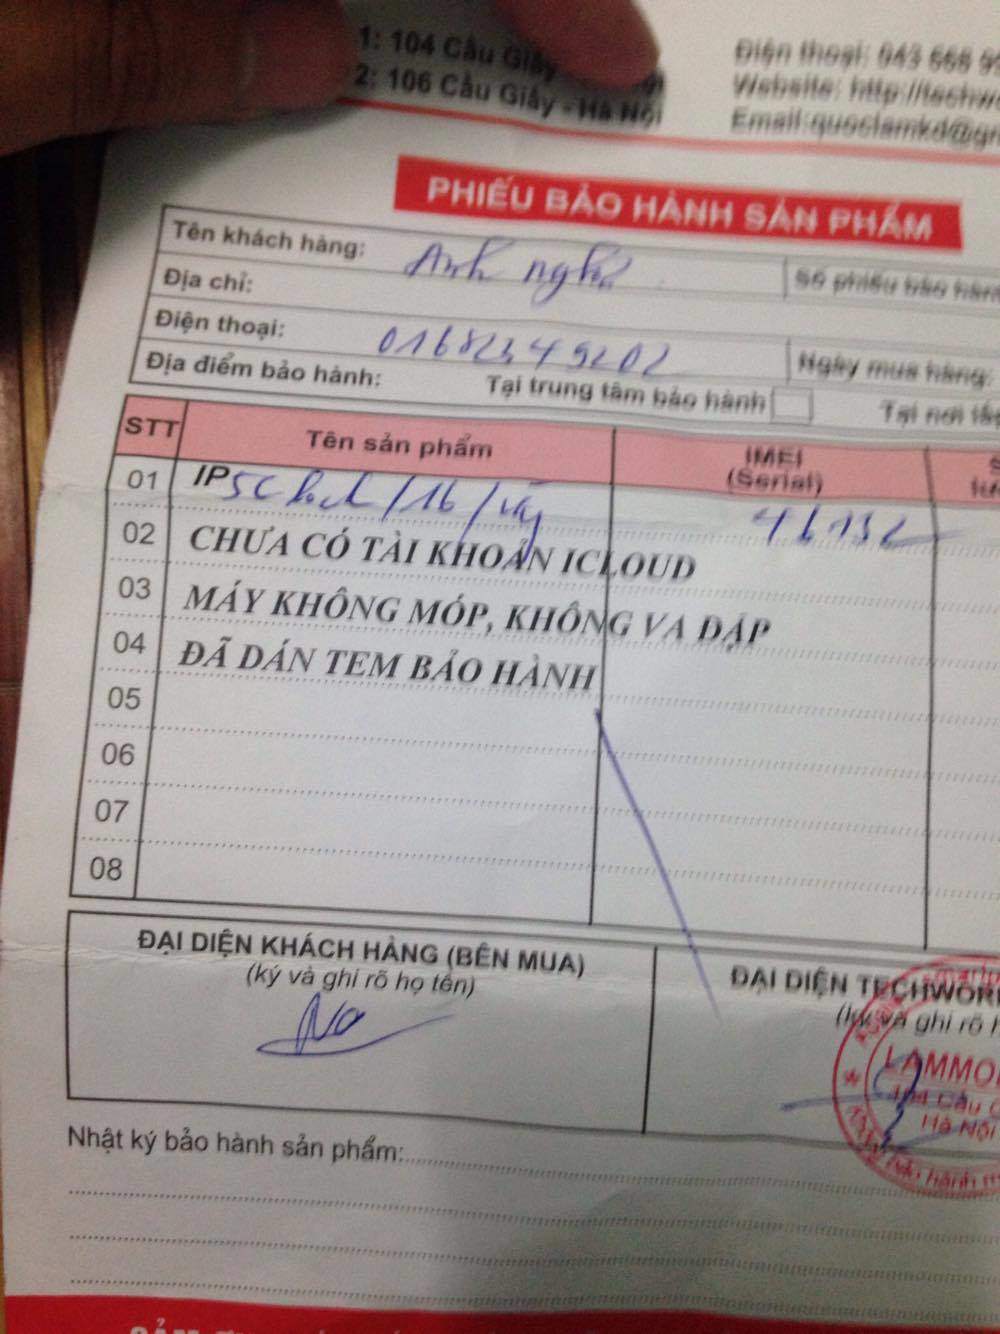 1: 104 Cầu Giấy
2: 106 Cầu Giấy - Hà Nội
Điện thoại: 043 668
Website: http://techw
Email:quoclamkd@g
PHIẾU BẢO HÀNH SẢN PHẨM
Tên khách hàng: Anh
Số phiếu bảo hàn
Địa chỉ:
Điện thoại:
Ngày mua hàng:
Địa điểm bảo hành: Tại trung tâm bảo hành Tại nơi
STT Tên sản phẩm IMEI
(Serial)
01 IP5C lock/16/
02 CHƯA CÓ TÀI KHOẢN ICLOUD
03 MÁY KHÔNG MÓP, KHÔNG VA ĐẬP
04 ĐÃ DÁN TEM BẢO HÀNH
05
06
07
08
ĐẠI DIỆN KHÁCH HÀNG (BÊN MUA)
(ký và ghi rõ họ tên)
ĐẠI DIỆN TECHWOR
(ký và ghi rõ h
LAMMO
104 Cầu G
Hà Nội
Nhật ký bảo hành sản phẩm: